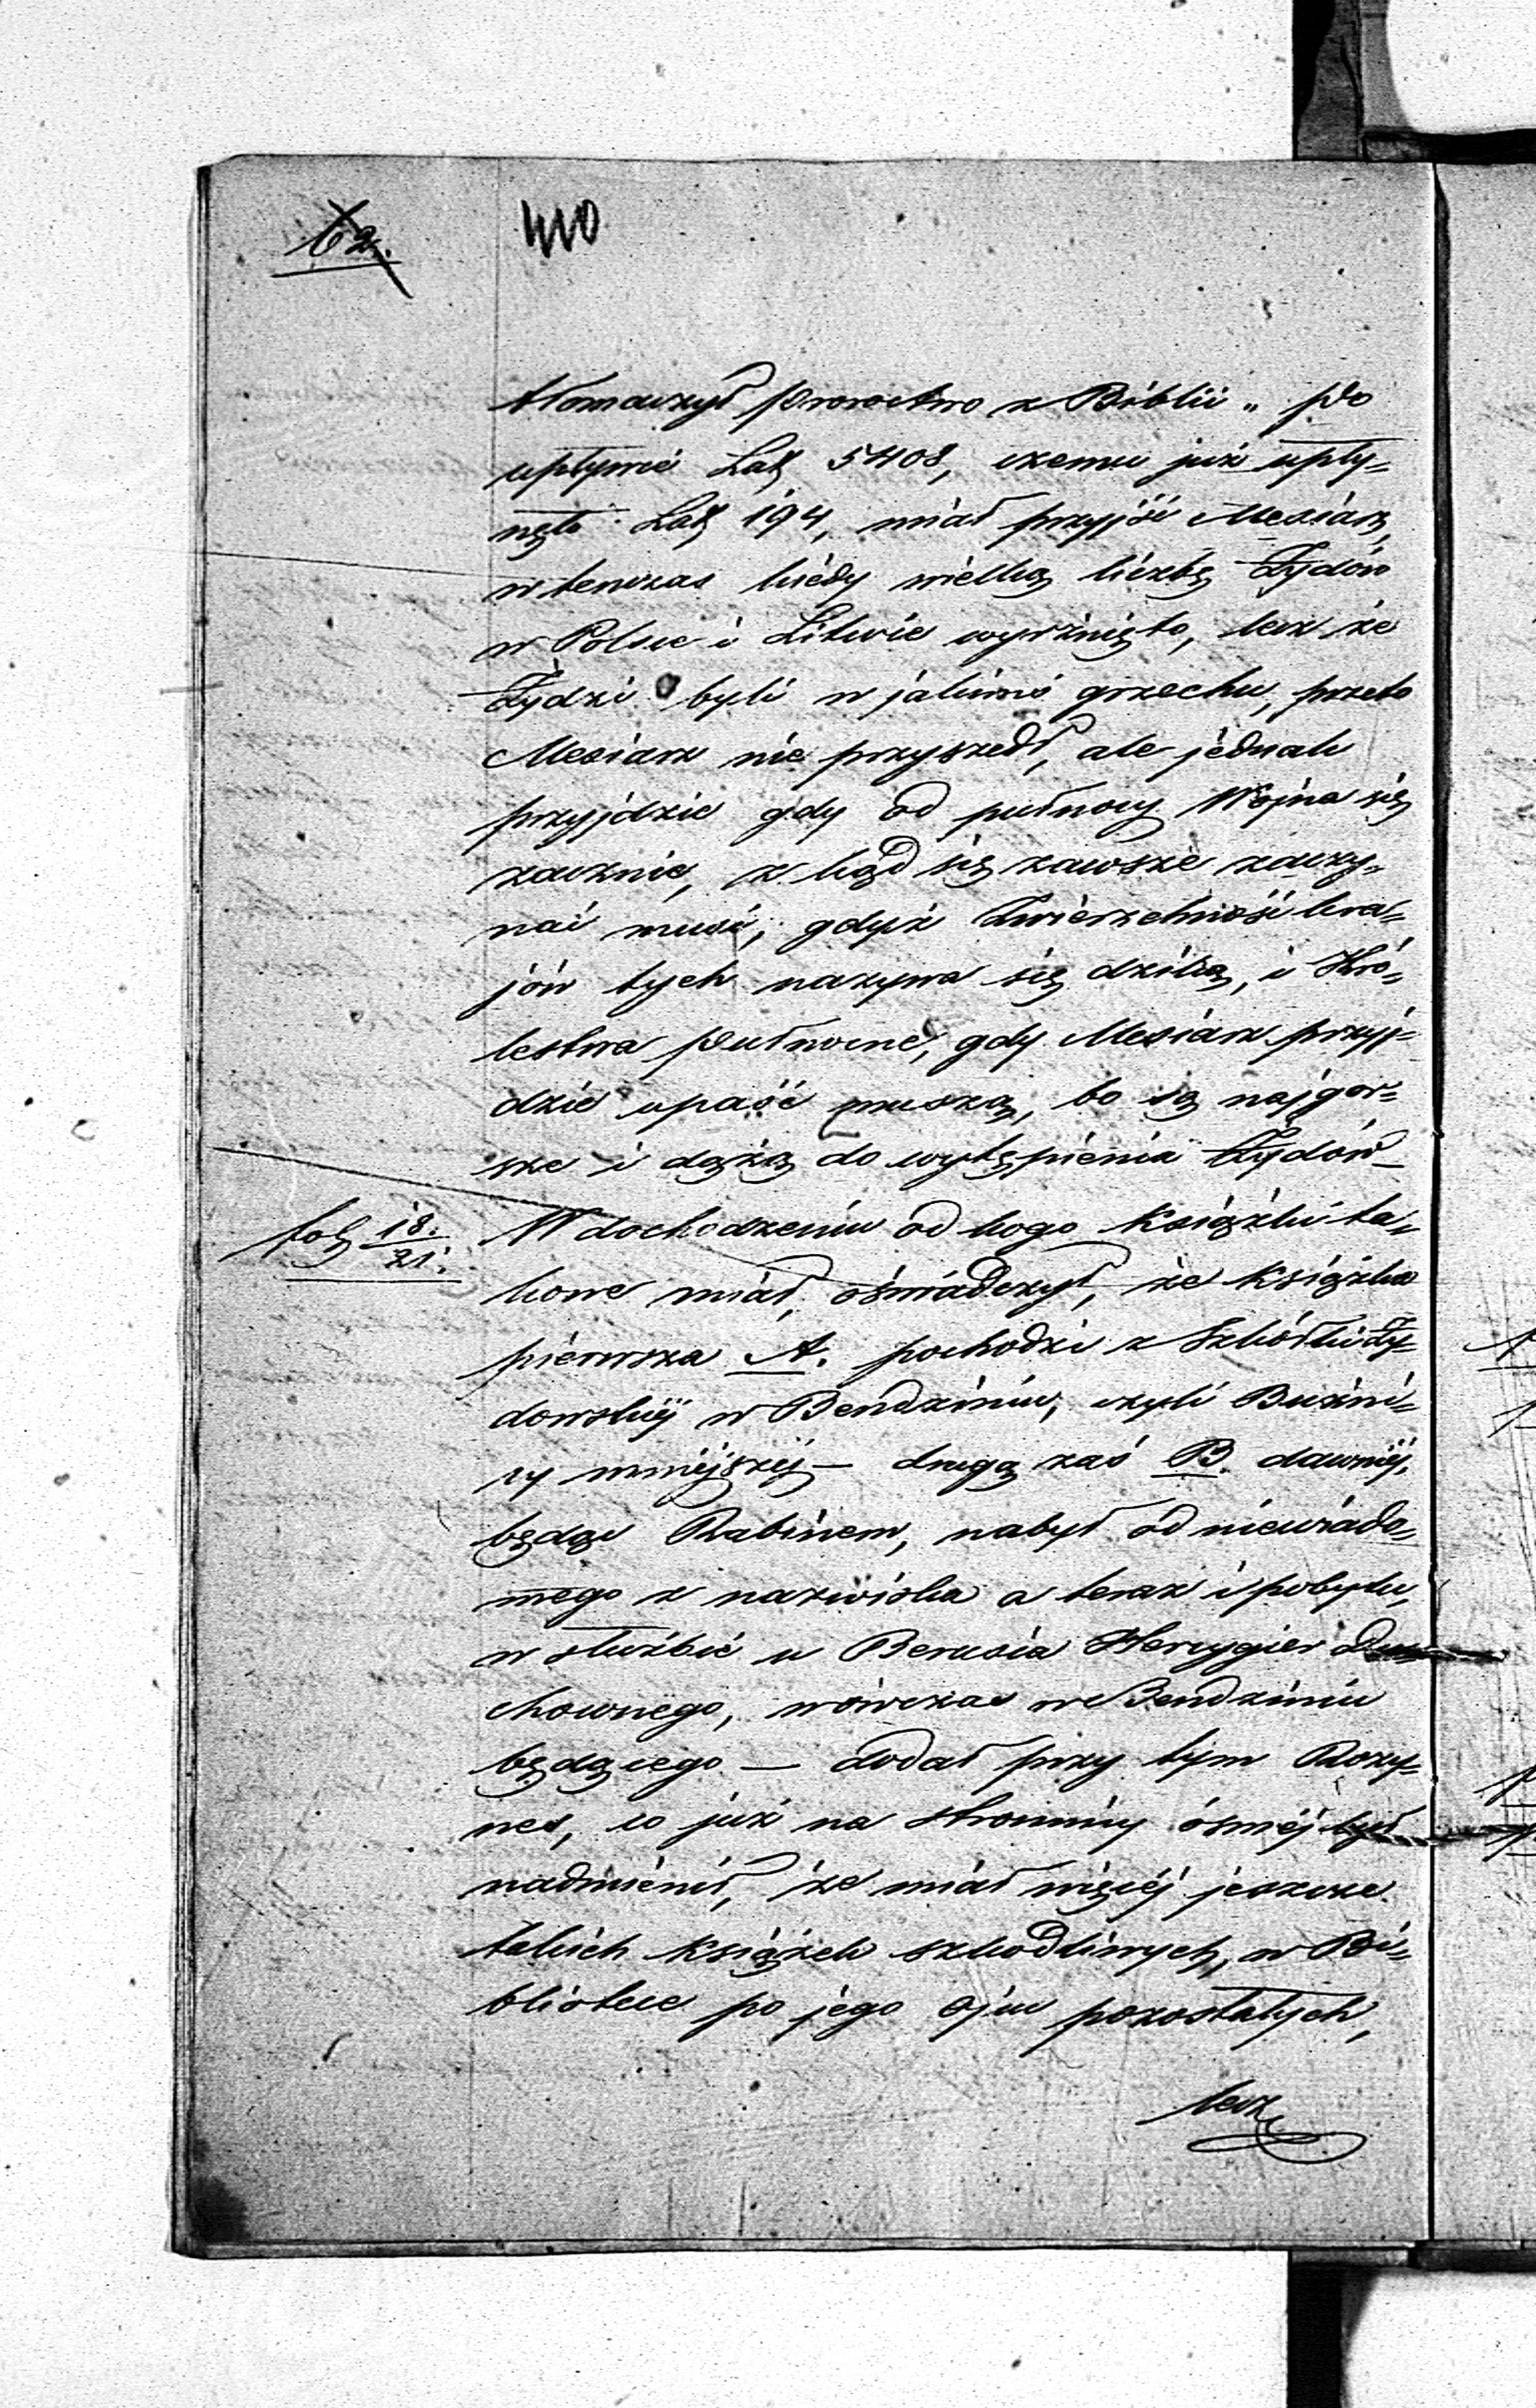 12.
410
tłomaczył Proroctwo z Biblii „ po
upływie Lat 5408, czemu już upły-
nęło Lat 194, miał przyjść Mesiasz,
w tenczas kiedy wielką liczbę Żydów
w Polsce i Litwie wyrżnięto, lecz że
Żydzi byli w jakimś grzechu, przeto
Mesiasz nie przyszedł, ale jednak
przyjdzie gdy od pułnocy Wojna się
zacznie, z kąd się zawsze zaczy-
nać musi, gdyż Zwierzchność kra-
jów tych nazywa się dziką, i Kró-
lestwa Pułnocne, gdy Mesiasz przyj-
dzie upaść muszą, bo są najgor-
sze i dążą do wytępienia Żydów —
fol 18.
21.
W dochodzeniu od kogo Książki ta-
kowe miał, oświadczył, że Książka
pierwsza A. pochodzi z Szkółki Ży-
dowskiéj w Bendziniu, czyli Bużni-
cy mniejszéj — drugą zaś B. dawniéj,
będąc Rabinem, nabył od niewiado-
mego z nazwiska a teraz i pobytu,
w służbie u Berusia Hercygier Du-
chownego, wówczas w Bendziniu
będącego — dodał przy tym Rozy-
nes, co już na stronnicy ósméj był
nadmienił, że miał więcéj jeszcze
takich Książek szkodliwych, w Bi-
bliotece po jego Ojcu pozostałych,
lecz